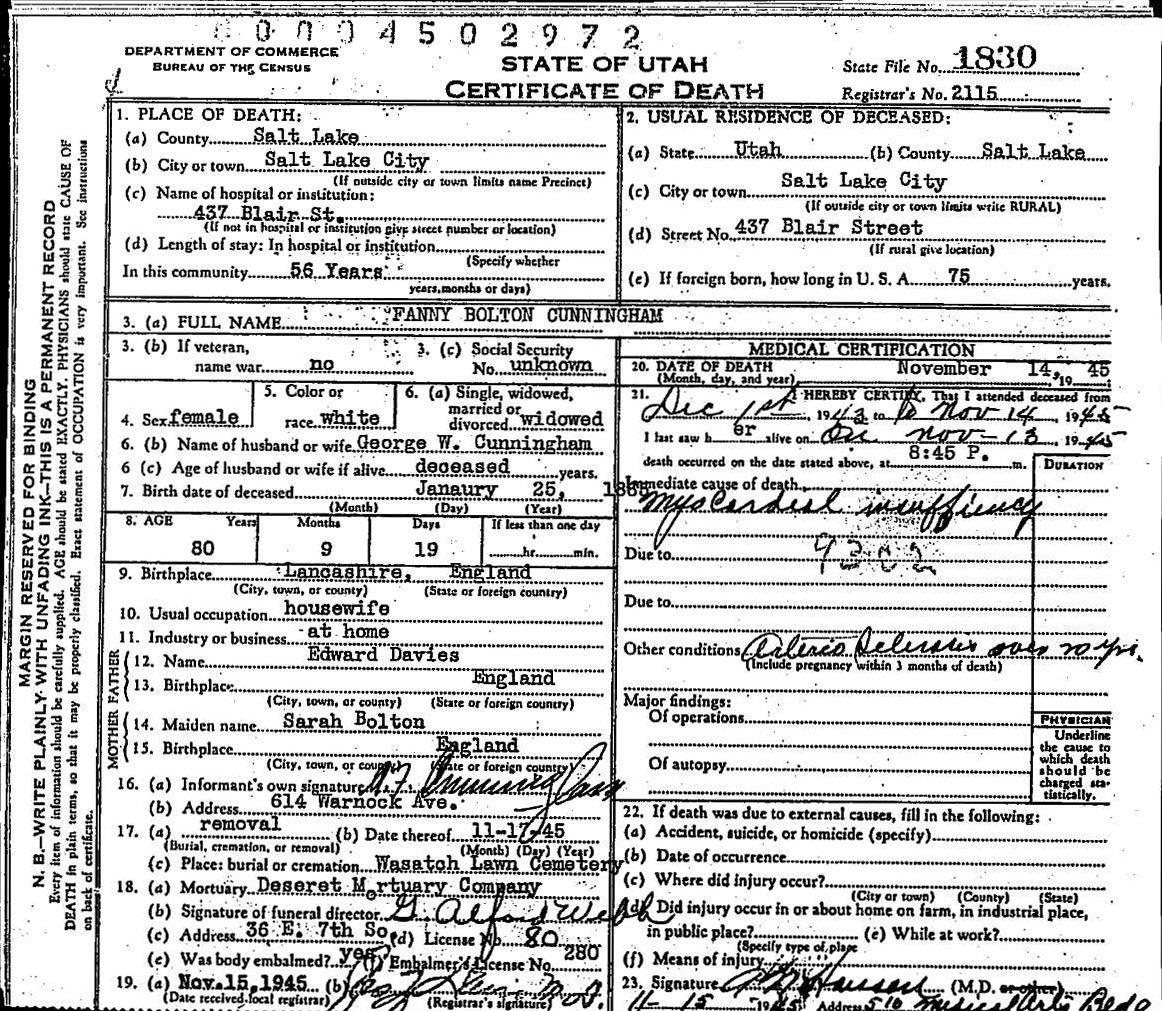 0 0 0 4 5 0 2 9 7 2
DEPARTMENT OF COMMERCE
BUREAU OF THE CENSUS
STATE OF UTAH
CERTIFICATE OF DEATH
State File No. 1830
Registrar's No. 2115
MARGIN RESERVED FOR BINDING
N. B.—WRITE PLAINLY WITH UNFADING INK—THIS IS A PERMANENT RECORD
Every item of information should be carefully supplied. AGE should be stated EXACTLY. PHYSICIANS should state CAUSE OF
DEATH in plain terms, so that it may be properly classified. Exact statement of OCCUPATION is very important. See instructions
on back of certificate.
1. PLACE OF DEATH:
(a) County Salt Lake
(b) City or town Salt Lake City
(If outside city or town limits name Precinct)
(c) Name of hospital or institution:
437 Blair St.
(If not in hospital or institution give street number or location)
(d) Length of stay: In hospital or institution
(Specify whether
In this community 56 Years
years, months or days)
2. USUAL RESIDENCE OF DECEASED:
(a) State Utah (b) County Salt Lake
(c) City or town Salt Lake City
(If outside city or town limits write RURAL)
(d) Street No. 437 Blair Street
(If rural give location)
(e) If foreign born, how long in U. S. A. 75 years.
3. (a) FULL NAME FANNY BOLTON CUNNINGHAM
3. (b) If veteran,
name war no
3. (c) Social Security
No. unknown
4. Sex female
5. Color or
race white
6. (a) Single, widowed,
married or
divorced widowed
6. (b) Name of husband or wife George W. Cunningham
6 (c) Age of husband or wife if alive deceased years.
7. Birth date of deceased Janaury 25, 1865
(Month) (Day) (Year)
8. AGE Years Months Days If less than one day
80 9 19 hr. min.
9. Birthplace Lancashire, England
(City, town, or county) (State or foreign country)
10. Usual occupation housewife
11. Industry or business at home
FATHER
12. Name Edward Davies
13. Birthplace England
(City, town, or county) (State or foreign country)
MOTHER
14. Maiden name Sarah Bolton
15. Birthplace England
(City, town, or county) (State or foreign country)
16. (a) Informant's own signature Cunningham
(b) Address 614 Warnock Ave.
17. (a) removal (b) Date thereof 11-17-45
(Burial, cremation, or removal) (Month) (Day) (Year)
(c) Place: burial or cremation Wasatch Lawn Cemetery
18. (a) Mortuary Deseret Mortuary Company
(b) Signature of funeral director G. Alford Webb
(c) Address 36 E. 7th So. (d) License No. 80
(e) Was body embalmed? yes (f) Embalmer's License No. 280
19. (a) Nov. 15, 1945 (b)
(Date received local registrar) (Registrar's signature)
MEDICAL CERTIFICATION
20. DATE OF DEATH November 14, 19 45
(Month, day, and year)
21. I HEREBY CERTIFY, That I attended deceased from
Dec 1st, 1943 to Nov 14, 1945
I last saw h er alive on Nov-13, 1945
death occurred on the date stated above, at 8:45 P. m.
DURATION
Immediate cause of death
Myocardial insuffiency
Due to 9302
Due to
Other conditions Arterio Sclerosis over 20 yrs.
(Include pregnancy within 3 months of death)
Major findings:
Of operations
Of autopsy
PHYSICIAN
Underline
the cause to
which death
should be
charged sta-
tistically.
22. If death was due to external causes, fill in the following:
(a) Accident, suicide, or homicide (specify)
(b) Date of occurrence
(c) Where did injury occur?
(City or town) (County) (State)
(d) Did injury occur in or about home on farm, in industrial place,
in public place? (e) While at work?
(Specify type of place
(f) Means of injury
23. Signature Hansen (M.D. or other)
11-15 1945 Address 510 Medical Arts Bldg